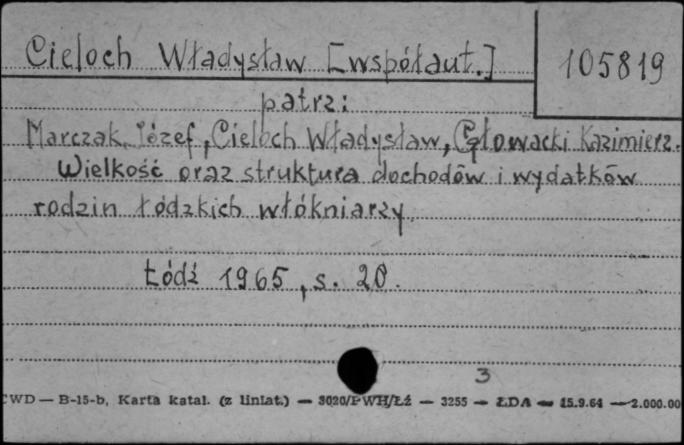 Cieloch Władysław [współaut.]
105819
patrz:
Marczak Józef, Cieloch Władysław, Głowacki Kazimierz.
Wielkość oraz struktura dochodów i wydatków
rodzin łódzkich włókniarzy.
Łódź 1965, s. 20.
3
CWD — B-15-b, Karta katal. (z liniat.) — 3020/PWH/Łź — 3255 — ŁDA — 15.9.64 — 2.000.00